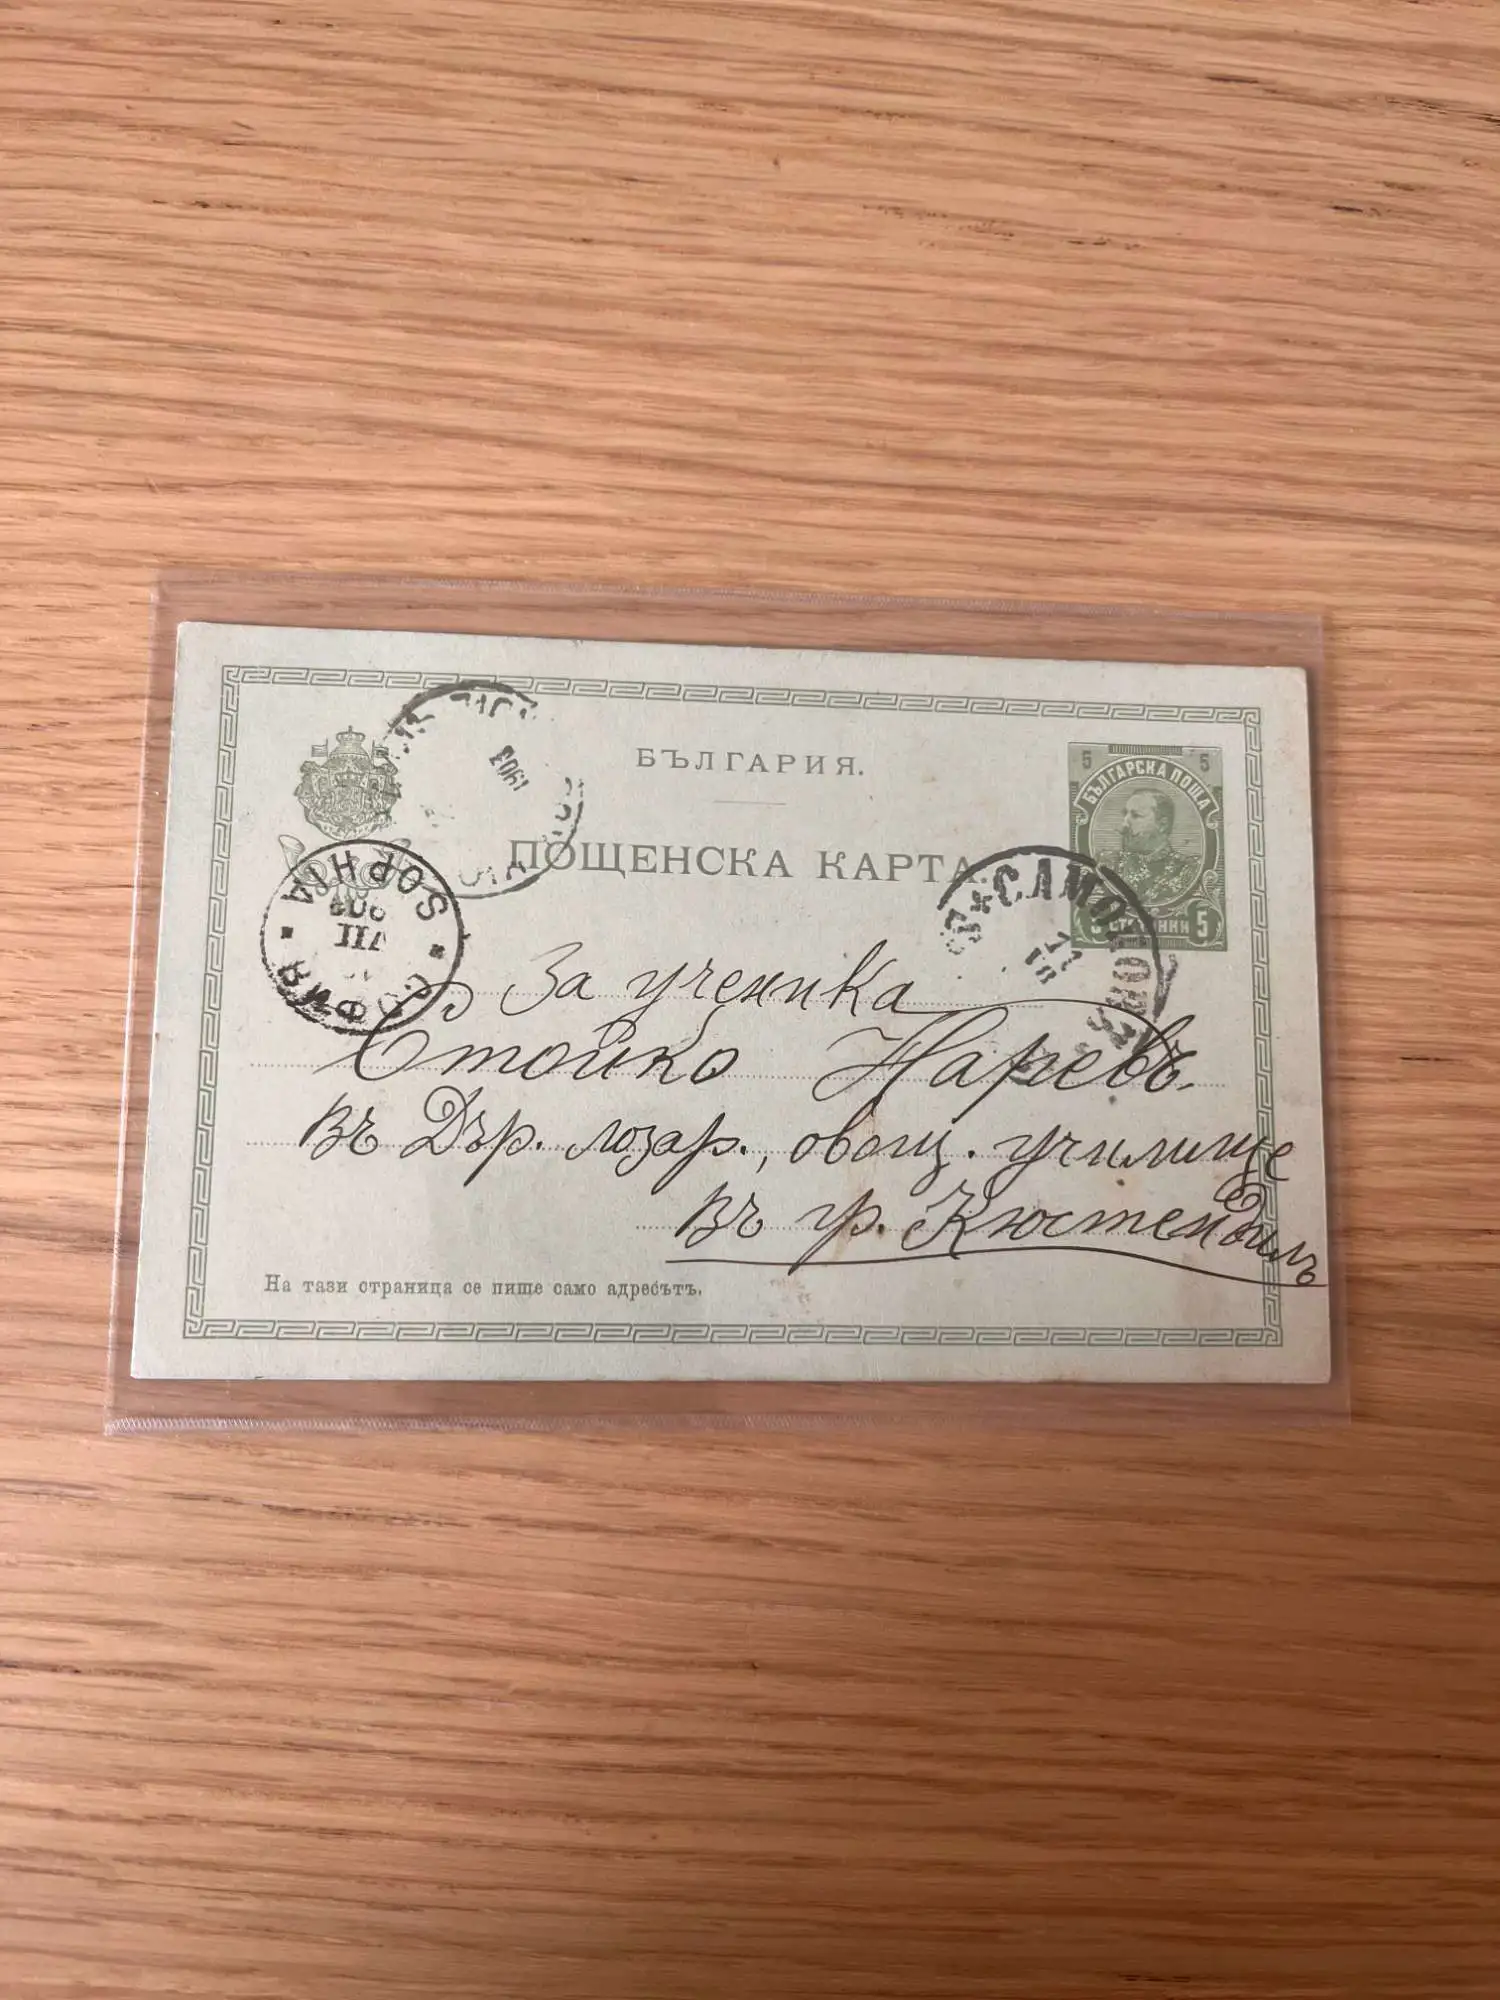 БЪЛГАРИЯ.
5 5
БЪЛГАРСКА ПОЩА
ПОЩЕНСКА КАРТА.
5 СТОТИНКИ 5
1903
СОФИЯ
SOPHIA
VII
САМОКОВЪ
VII
За ученика
Стойко Наревъ.
въ Държ. лозар., овощ. училище
въ гр. Кюстендилъ
На тази страница се пише само адресътъ.